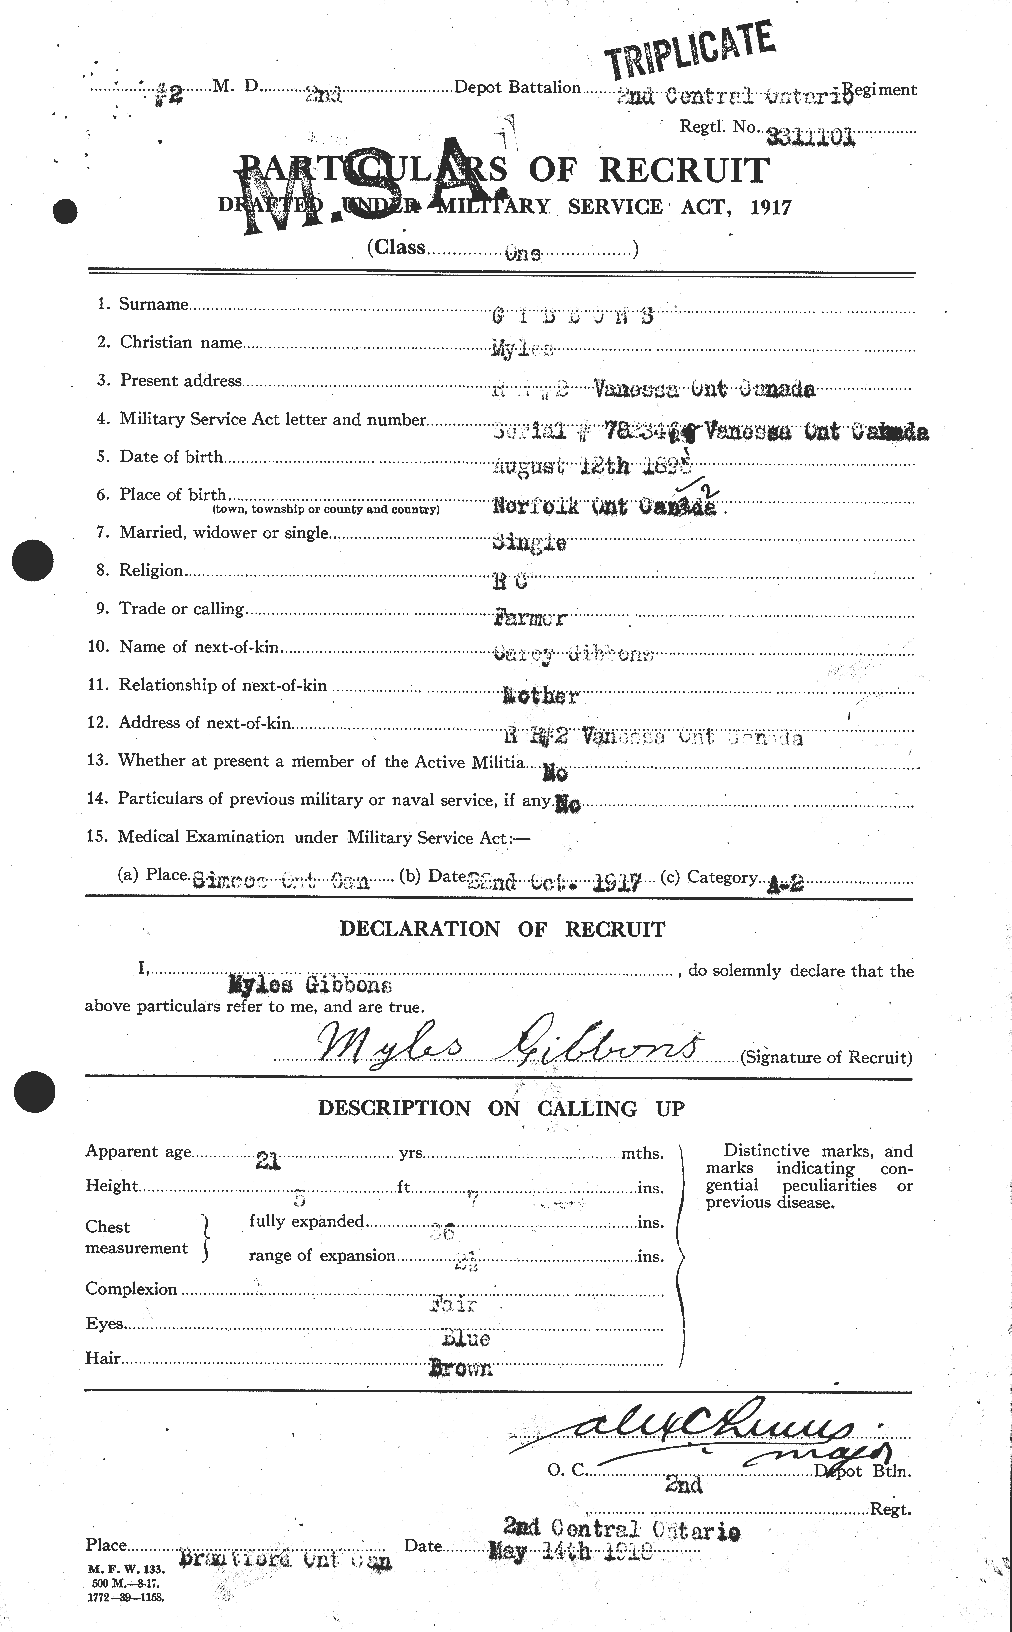 TRIPLICATE
#2 M. D. 2nd Depot Battalion 2nd Central Ontario Regiment
Regtl. No. 3311101
M.S.A.
PARTICULARS OF RECRUIT
DRAFTED UNDER MILITARY SERVICE ACT, 1917
(Class One )
1. Surname G I B B O N S
2. Christian name Myles
3. Present address R #2 Vanessa Ont Canada
4. Military Service Act letter and number Serial # Vanessa Ont Canada
5. Date of birth August 12th
6. Place of birth Norfolk Ont Canada.
(town, township or county and country)
7. Married, widower or single Single
8. Religion R C
9. Trade or calling Farmer
10. Name of next-of-kin Gibbons
11. Relationship of next-of-kin Mother
12. Address of next-of-kin R R#2 Vanessa Ont Canada
13. Whether at present a member of the Active Militia No
14. Particulars of previous military or naval service, if any No
15. Medical Examination under Military Service Act:—
(a) Place Simcoe Ont Can (b) Date 22nd Oct. 1917 (c) Category A-2
DECLARATION OF RECRUIT
I, Myles Gibbons , do solemnly declare that the
above particulars refer to me, and are true.
Myles Gibbons (Signature of Recruit)
DESCRIPTION ON CALLING UP
Apparent age 21 yrs. mths.
Height 5 ft 7 ins.
Chest measurement } fully expanded 36 ins.
range of expansion ins.
Complexion Fair
Eyes Blue
Hair Brown
Distinctive marks, and
marks indicating con-
genital peculiarities or
previous disease.
Major
O. C. 2nd Depot Btln.
2nd Central Ontario Regt.
Place Brantford Ont Can Date May 14th 1918
M. F. W. 133.
500 M.—8-17.
1772—39—1158.